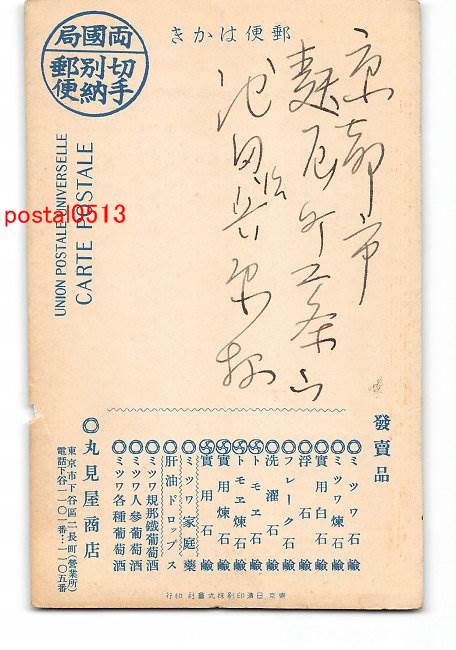 郵便はかき
両國局
切手別納郵便
UNION POSTALE UNIVERSELLE
CARTE POSTALE
postal0513
京都市
麩屋町二条山
池田
發賣品
ミツワ石鹸
ミツワ煉石鹸
實用白石鹸
浮石鹸
フレーク石鹸
洗濯石鹸
トモヱ石鹸
トモヱ煉石鹸
實用煉石鹸
實用石鹸
ミツワ家庭藥
肝油ドロップス
ミツワ規那鐵葡萄酒
ミツワ人參葡萄酒
ミツワ各種葡萄酒
丸見屋商店
東京市下谷區二長町(營業所)
電話下谷一一〇一番…一一〇五番
東京 日淸印刷株式會社 印行